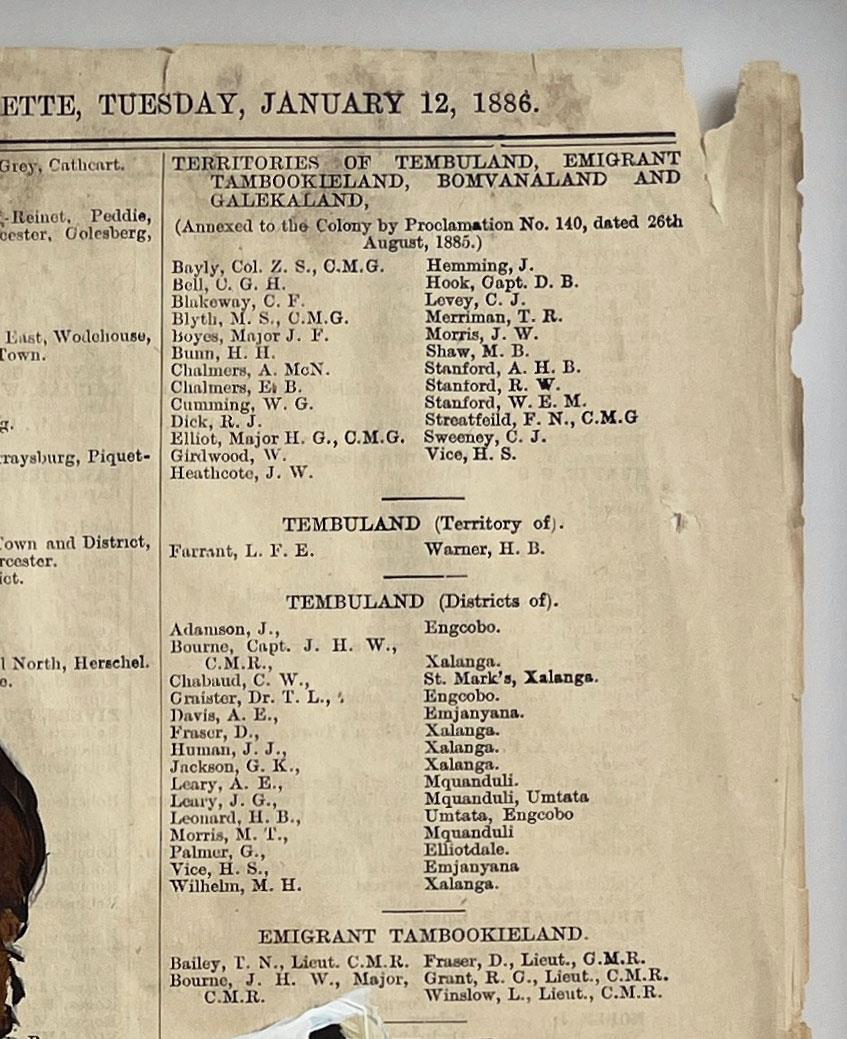 ETTE, TUESDAY, JANUARY 12, 1886.
Grey, Cathcart.
-Reinet, Peddie,
cester, Colesberg,
East, Wodehouse,
Town.
g.
raysburg, Piquet-
Town and District,
rcester.
ict.
l North, Herschel.
e.
TERRITORIES OF TEMBULAND, EMIGRANT
TAMBOOKIELAND, BOMVANALAND AND
GALEKALAND,
(Annexed to the Colony by Proclamation No. 140, dated 26th
August, 1885.)
Bayly, Col. Z. S., C.M.G.
Bell, C. G. H.
Blakeway, C. F.
Blyth, M. S., C.M.G.
Boyes, Major J. F.
Bunn, H. H.
Chalmers, A. McN.
Chalmers, E. B.
Cumming, W. G.
Dick, R. J.
Elliot, Major H. G., C.M.G.
Girdwood, W.
Heathcote, J. W.
Hemming, J.
Hook, Capt. D. B.
Levey, C. J.
Merriman, T. R.
Morris, J. W.
Shaw, M. B.
Stanford, A. H. B.
Stanford, R. W.
Stanford, W. E. M.
Streatfeild, F. N., C.M.G
Sweeney, C. J.
Vice, H. S.
TEMBULAND (Territory of).
Farrant, L. F. E. Warner, H. B.
TEMBULAND (Districts of).
Adamson, J., Engcobo.
Bourne, Capt. J. H. W.,
C.M.R., Xalanga.
Chabaud, C. W., St. Mark's, Xalanga.
Craister, Dr. T. L., Engcobo.
Davis, A. E., Emjanyana.
Fraser, D., Xalanga.
Human, J. J., Xalanga.
Jackson, G. K., Xalanga.
Leary, A. E., Mquanduli.
Leary, J. G., Mquanduli, Umtata
Leonard, H. B., Umtata, Engcobo
Morris, M. T., Mquanduli
Palmer, G., Elliotdale.
Vice, H. S., Emjanyana
Wilhelm, M. H. Xalanga.
EMIGRANT TAMBOOKIELAND.
Bailey, T. N., Lieut. C.M.R. Fraser, D., Lieut., C.M.R.
Bourne, J. H. W., Major, Grant, R. G., Lieut., C.M.R.
C.M.R. Winslow, L., Lieut., C.M.R.